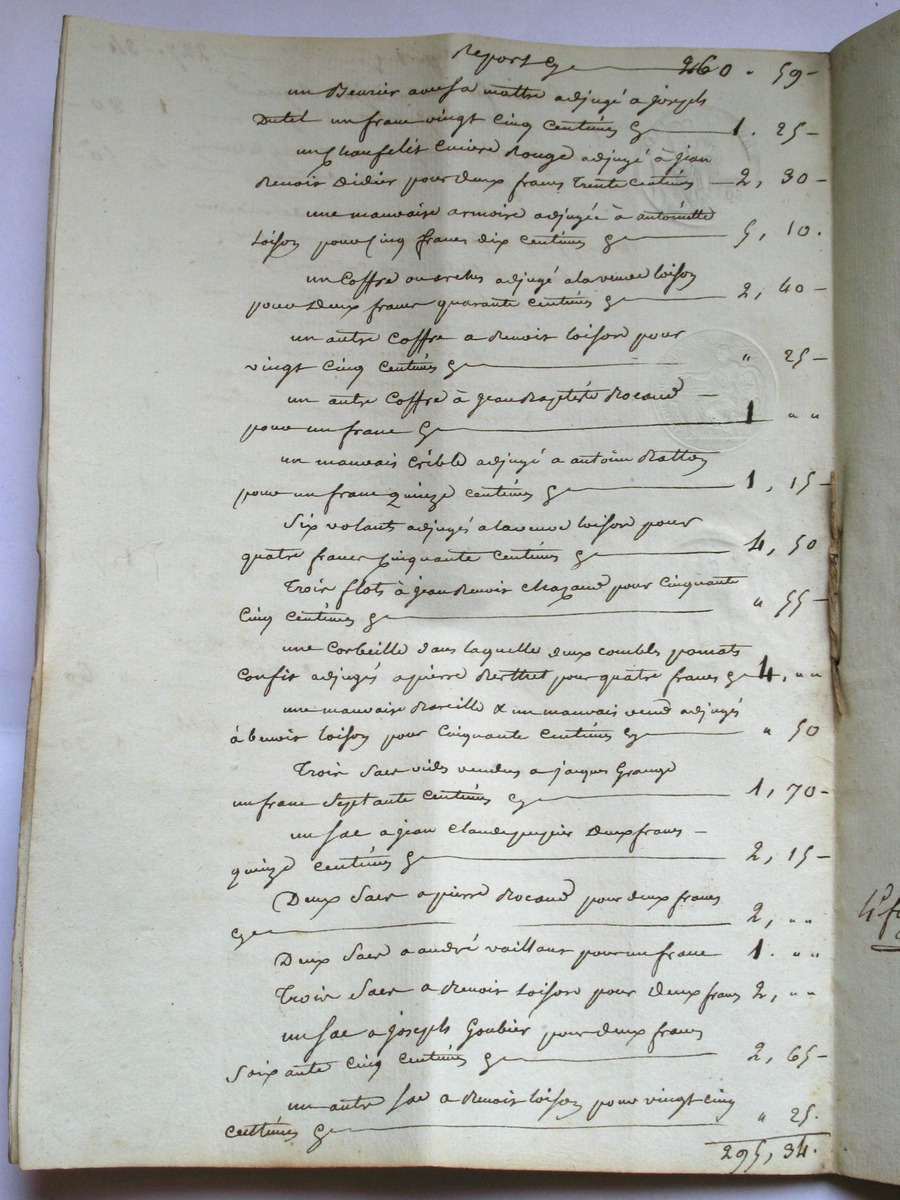 Report cy 260 " 59
un Beurier avec sa mattre adjugé a joseph
Dutel un franc vingt cinq centimes 1. 25
un adjugé à jean
Benoit Didier pour deux francs trente centimes 2, 30
une mauvaise armoire adjugée à antoinette
Loison pour cinq francs dix centimes 5, 10.
un coffre ou arches adjugé a la veuve loison
pour deux francs quarante centimes 2, 40
un autre coffre a Benoit loison pour
vingt cinq centimes " 25
un autre coffre à jean Baptiste Rocand
pour un franc 1 " "
un mauvais crible adjugé a antoine
pour un franc quinze centimes 1, 15
Six volants adjugés a la veuve loison pour
quatre francs cinquante centimes 4, 50
Trois flots à jean Benoit Chazand pour cinquante
cinq centimes " 55
une corbeille dans laquelle deux
adjugés a pierre Berthet pour quatre francs 4, " "
une mauvaise & un mauvais adjugés
à benoit loison pour cinquante centimes " 50
Trois sacs vides vendus a jacques Grange
un franc septante centimes 1, 70
un sac a jean claude deux francs
quinze centimes 2, 15
Deux sacs a pierre Rocand pour deux francs
2, " "
Deux sacs a andré vaillant pour un franc 1. " "
Trois sacs a Benoit Loison pour deux francs 2, " "
un sac a joseph Goubier pour deux francs
soixante cinq centimes 2, 65
un autre sac a Benoit loison pour vingt cinq
centimes " 25.
295, 34.